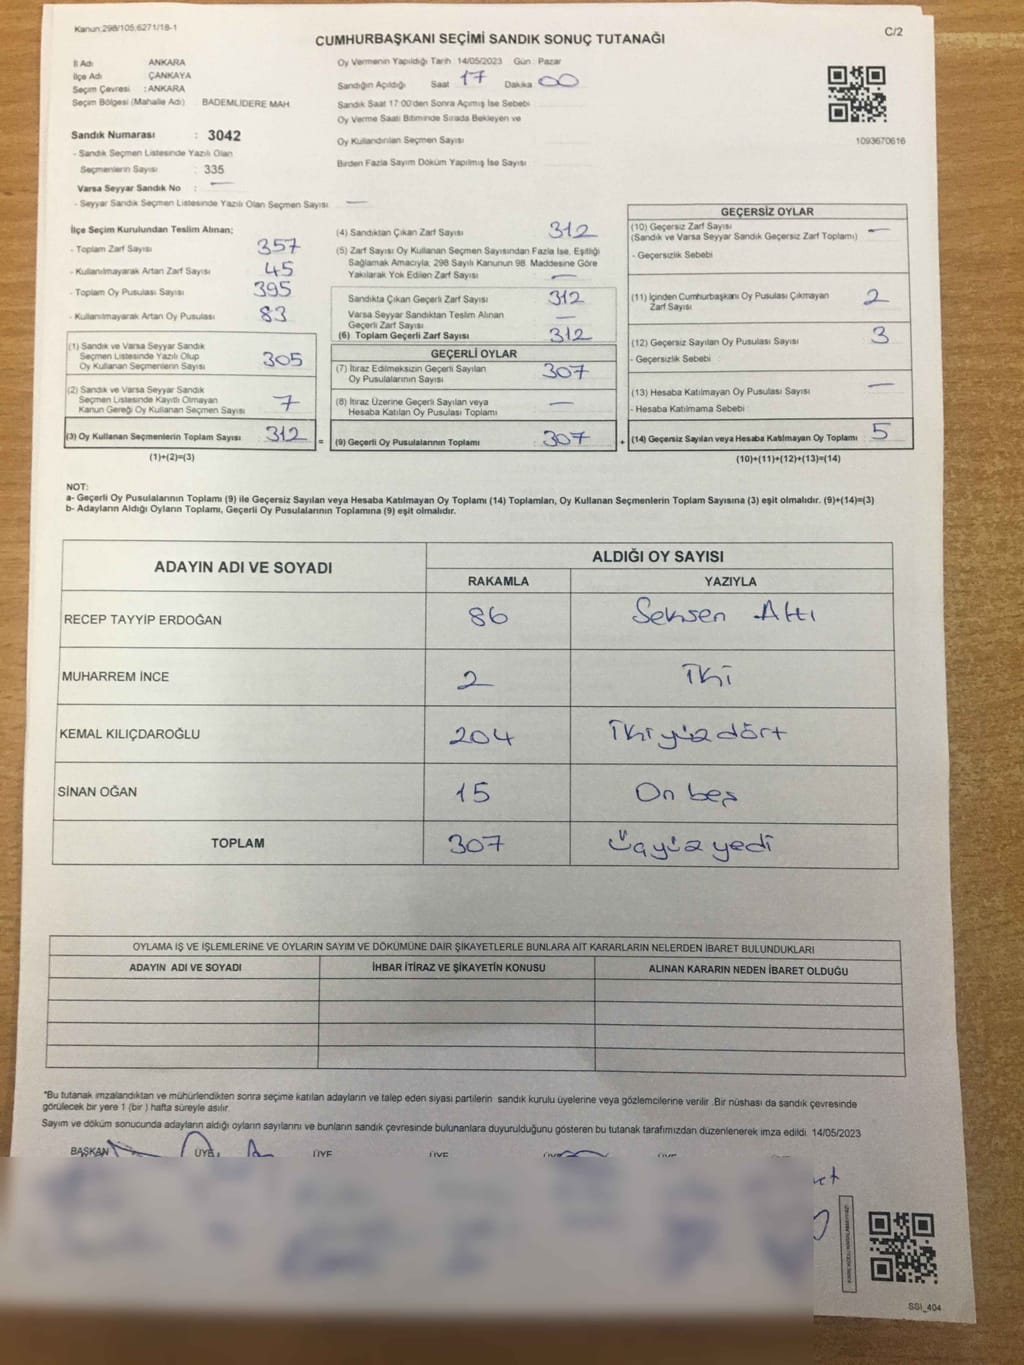 Kanun:298/105;6271/18-1
C/2
CUMHURBAŞKANI SEÇİMİ SANDIK SONUÇ TUTANAĞI
İl Adı ANKARA
İlçe Adı ÇANKAYA
Seçim Çevresi : ANKARA
Seçim Bölgesi (Mahalle Adı) BADEMLİDERE MAH.
Sandık Numarası : 3042
- Sandık Seçmen Listesinde Yazılı Olan
Seçmenlerin Sayısı : 335
Varsa Seyyar Sandık No : —
- Seyyar Sandık Seçmen Listesinde Yazılı Olan Seçmen Sayısı —
Oy Vermenin Yapıldığı Tarih 14/05/2023 Gün : Pazar
Sandığın Açıldığı Saat 17 Dakika 00
Sandık Saat 17:00'den Sonra Açımış İse Sebebi
Oy Verme Saati Bitiminde Sırada Bekleyen ve
Oy Kullandırılan Seçmen Sayısı
Birden Fazla Sayım Döküm Yapılmış İse Sayısı
1093670616
İlçe Seçim Kurulundan Teslim Alınan;
- Toplam Zarf Sayısı 357
- Kullanılmayarak Artan Zarf Sayısı 45
- Toplam Oy Pusulası Sayısı 395
- Kullanılmayarak Artan Oy Pusulası 83
(1) Sandık ve Varsa Seyyar Sandık
Seçmen Listesinde Yazılı Olup
Oy Kullanan Seçmenlerin Sayısı 305
(2) Sandık ve Varsa Seyyar Sandık
Seçmen Listesinde Kayıtlı Olmayan
Kanun Gereği Oy Kullanan Seçmen Sayısı 7
(3) Oy Kullanan Seçmenlerin Toplam Sayısı 312 =
(1)+(2)=(3)
(4) Sandıktan Çıkan Zarf Sayısı 312
(5) Zarf Sayısı Oy Kullanan Seçmen Sayısından Fazla İse, Eşitliği
Sağlamak Amacıyla, 298 Sayılı Kanunun 98. Maddesine Göre
Yakılarak Yok Edilen Zarf Sayısı —
Sandıkta Çıkan Geçerli Zarf Sayısı 312
Varsa Seyyar Sandıktan Teslim Alınan
Geçerli Zarf Sayısı —
(6) Toplam Geçerli Zarf Sayısı 312
GEÇERLİ OYLAR
(7) İtiraz Edilmeksizin Geçerli Sayılan
Oy Pusulalarının Sayısı 307
(8) İtiraz Üzerine Geçerli Sayılan veya
Hesaba Katılan Oy Pusulası Toplamı —
(9) Geçerli Oy Pusulalarının Toplamı 307 +
GEÇERSİZ OYLAR
(10) Geçersiz Zarf Sayısı —
(Sandık ve Varsa Seyyar Sandık Geçersiz Zarf Toplamı)
- Geçersizlik Sebebi
(11) İçinden Cumhurbaşkanı Oy Pusulası Çıkmayan
Zarf Sayısı 2
(12) Geçersiz Sayılan Oy Pusulası Sayısı 3
- Geçersizlik Sebebi
(13) Hesaba Katılmayan Oy Pusulası Sayısı —
- Hesaba Katılmama Sebebi
(14) Geçersiz Sayılan veya Hesaba Katılmayan Oy Toplamı 5
(10)+(11)+(12)+(13)=(14)
NOT:
a- Geçerli Oy Pusulalarının Toplamı (9) ile Geçersiz Sayılan veya Hesaba Katılmayan Oy Toplamı (14) Toplamları, Oy Kullanan Seçmenlerin Toplam Sayısına (3) eşit olmalıdır. (9)+(14)=(3)
b- Adayların Aldığı Oyların Toplamı, Geçerli Oy Pusulalarının Toplamına (9) eşit olmalıdır.
ADAYIN ADI VE SOYADI ALDIĞI OY SAYISI
RAKAMLA YAZIYLA
RECEP TAYYİP ERDOĞAN 86 Seksen Altı
MUHARREM İNCE 2 İki
KEMAL KILIÇDAROĞLU 204 İkiyüzdört
SİNAN OĞAN 15 On beş
TOPLAM 307 Üçyüzyedi
OYLAMA İŞ VE İŞLEMLERİNE VE OYLARIN SAYIM VE DÖKÜMÜNE DAİR ŞİKAYETLERLE BUNLARA AİT KARARLARIN NELERDEN İBARET BULUNDUKLARI
ADAYIN ADI VE SOYADI İHBAR İTİRAZ VE ŞİKAYETİN KONUSU ALINAN KARARIN NEDEN İBARET OLDUĞU
*Bu tutanak imzalandıktan ve mühürlendikten sonra seçime katılan adayların ve talep eden siyasi partilerin sandık kurulu üyelerine veya gözlemcilerine verilir .Bir nüshası da sandık çevresinde
görülecek bir yere 1 (bir ) hafta süreyle asılır
Sayım ve döküm sonucunda adayların aldığı oyların sayılarını ve bunların sandık çevresinde bulunanlara duyurulduğunu gösteren bu tutanak tarafımızdan düzenlenerek imza edildi. 14/05/2023
BAŞKAN ÜYE ÜYE ÜYE
SSI_404